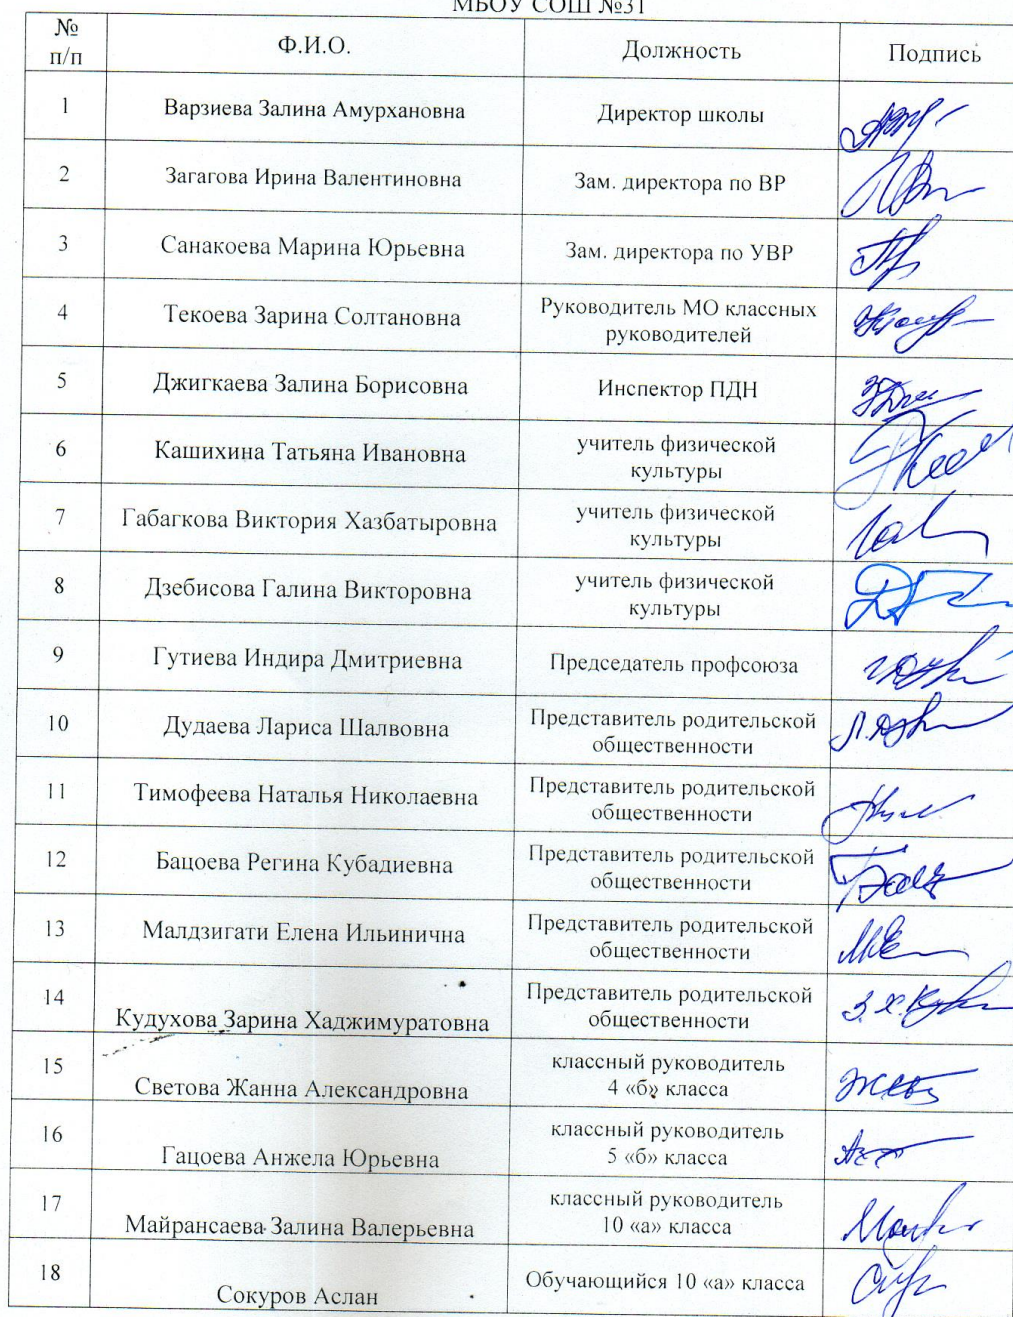 МБОУ СОШ №31
№ п/п Ф.И.О. Должность Подпись
1 Варзиева Залина Амурхановна Директор школы
2 Загагова Ирина Валентиновна Зам. директора по ВР
3 Санакоева Марина Юрьевна Зам. директора по УВР
4 Текоева Зарина Солтановна Руководитель МО классных
руководителей
5 Джигкаева Залина Борисовна Инспектор ПДН
6 Кашихина Татьяна Ивановна учитель физической
культуры
7 Габагкова Виктория Хазбатыровна учитель физической
культуры
8 Дзебисова Галина Викторовна учитель физической
культуры
9 Гутиева Индира Дмитриевна Председатель профсоюза
10 Дудаева Лариса Шалвовна Представитель родительской
общественности
11 Тимофеева Наталья Николаевна Представитель родительской
общественности
12 Бацоева Регина Кубадиевна Представитель родительской
общественности
13 Малдзигати Елена Ильинична Представитель родительской
общественности
14 Кудухова Зарина Хаджимуратовна Представитель родительской
общественности
15 Светова Жанна Александровна классный руководитель
4 «б» класса
16 Гацоева Анжела Юрьевна классный руководитель
5 «б» класса
17 Майрансаева Залина Валерьевна классный руководитель
10 «а» класса
18 Сокуров Аслан Обучающийся 10 «а» класса